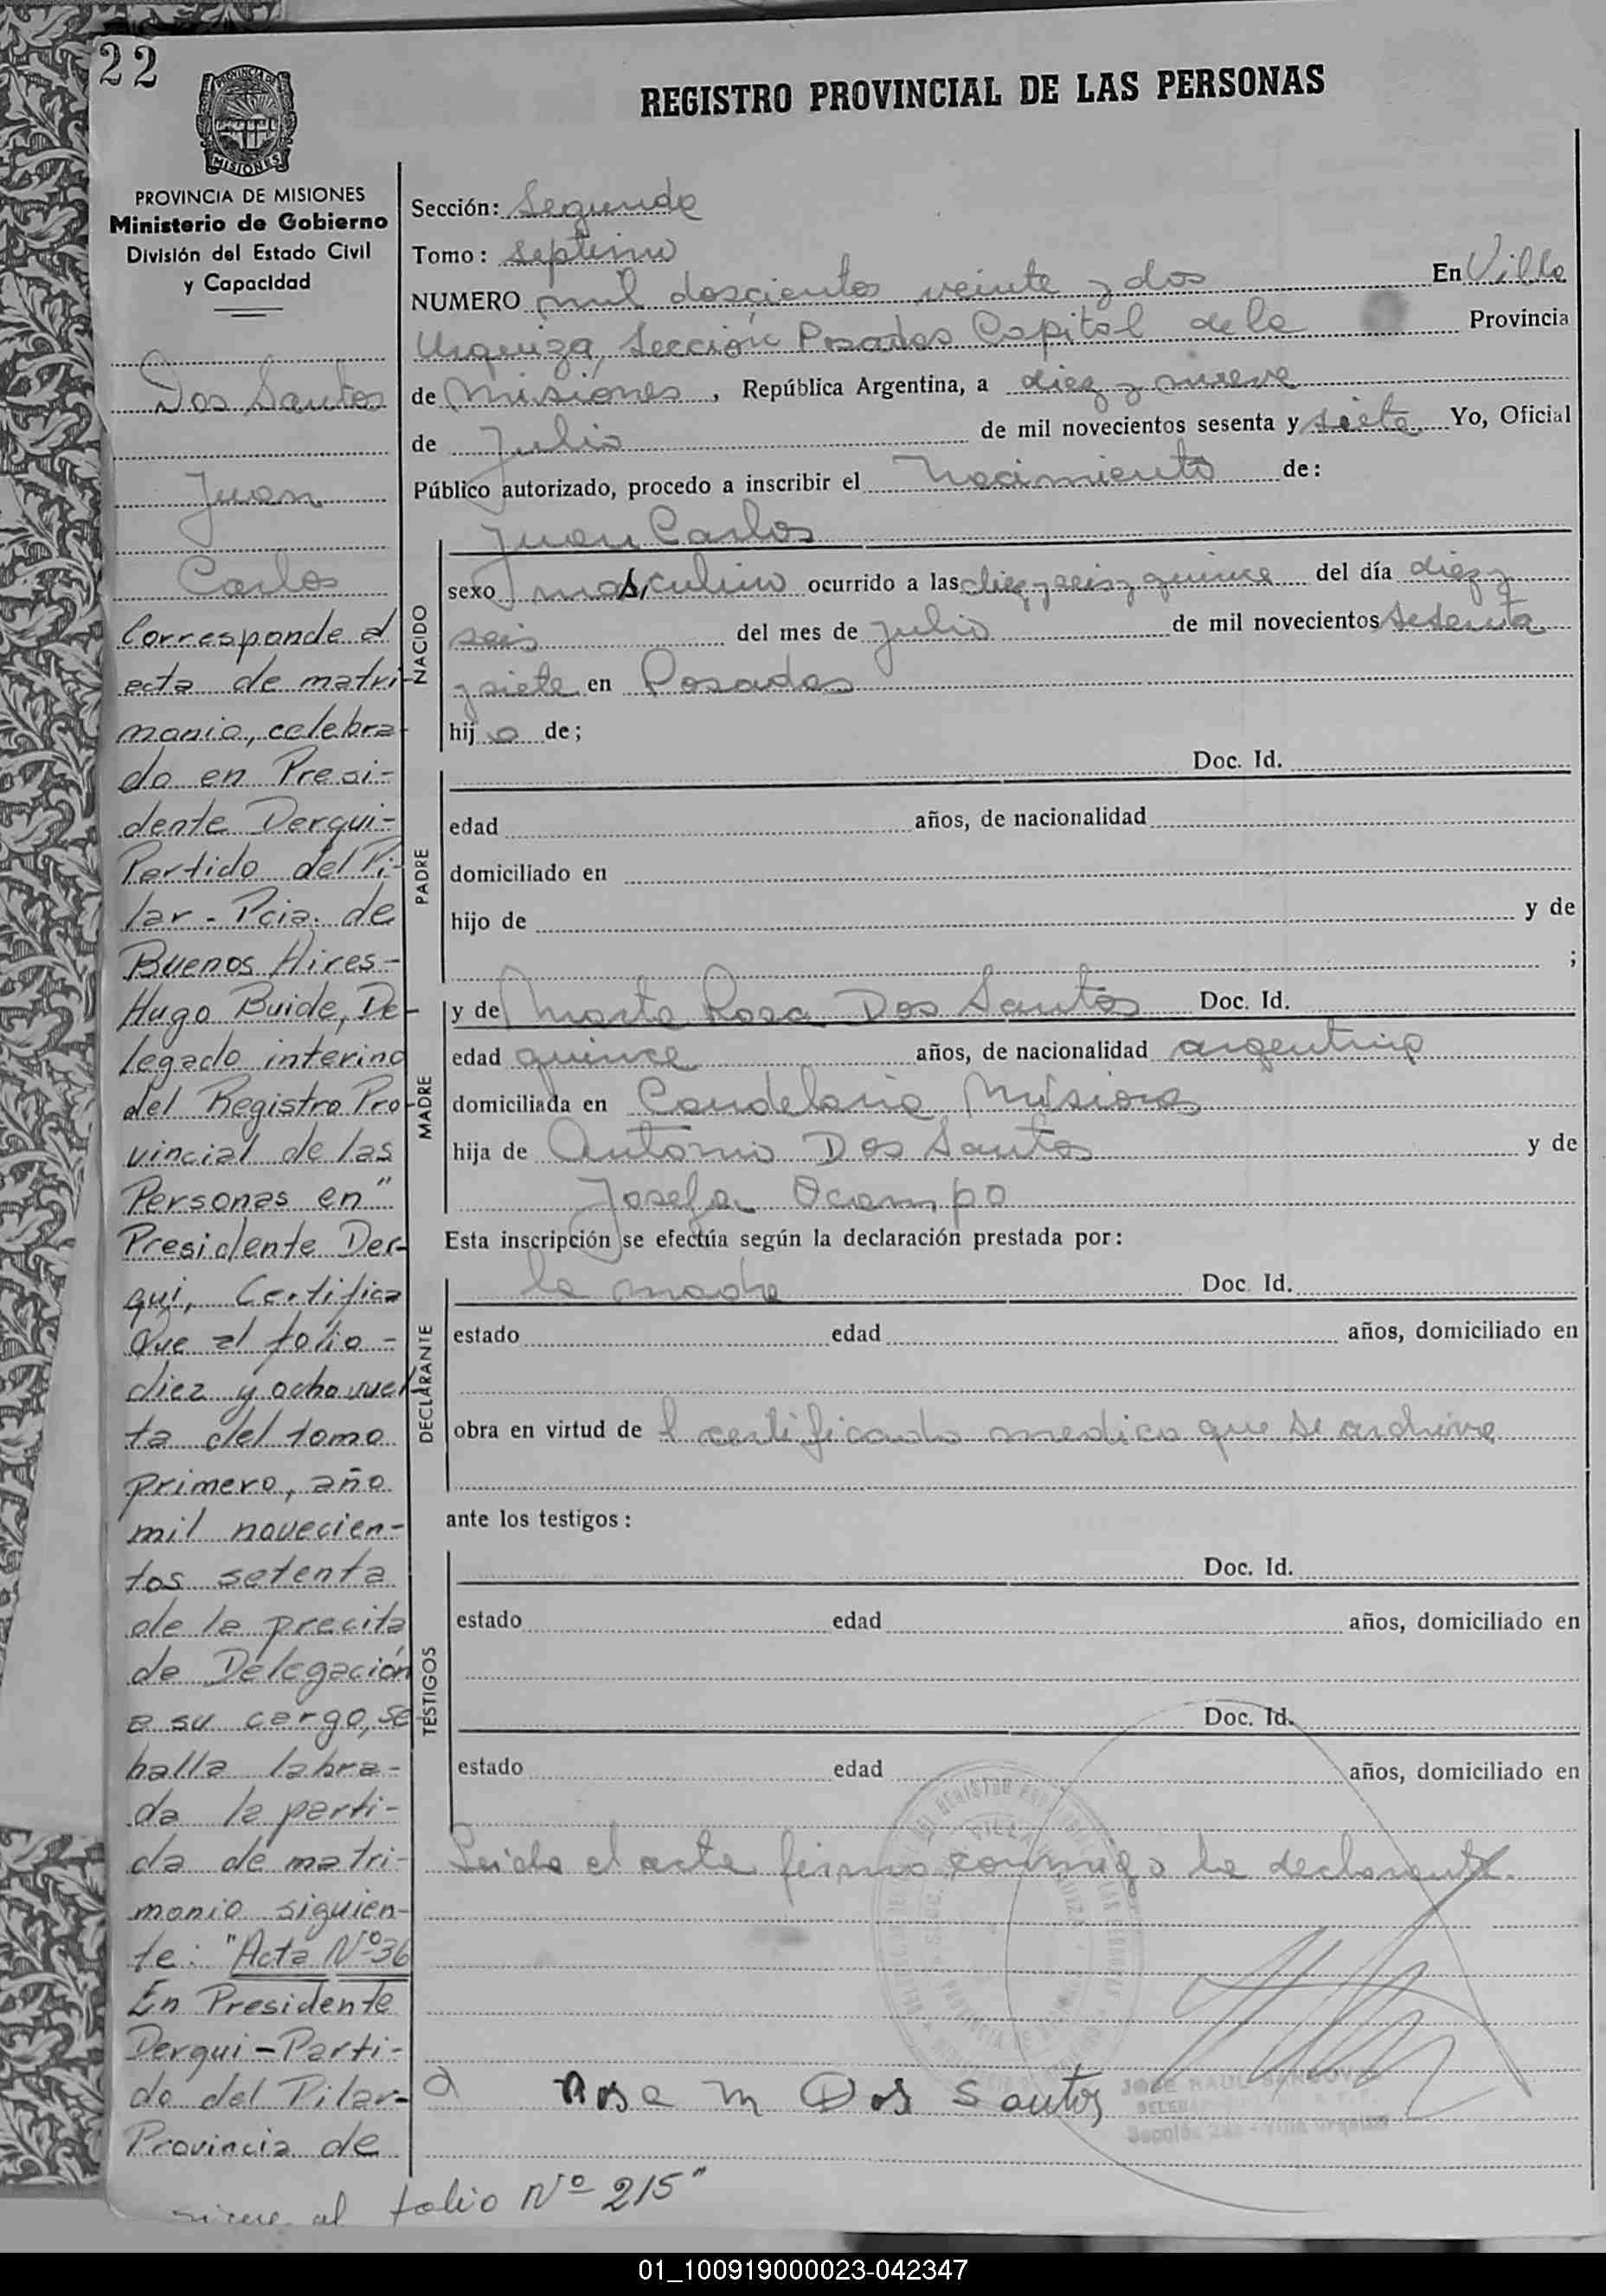 22
PROVINCIA DE
MISIONES
PROVINCIA DE MISIONES
Ministerio de Gobierno
División del Estado Civil
y Capacidad
Dos Santos
Juan
Carlos
Corresponde al
acta de matri-
monio, celebra-
do en Presi-
dente Derqui-
Partido del Pi-
lar - Pcia. de
Buenos Aires-
Hugo Buide, De-
legado interino
del Registro Pro-
vincial de las
Personas en"
Presidente Der-
qui, Certifica
Que al folio -
diez y ocho vuel-
ta del tomo
primero, año
mil novecien-
tos setenta
de la precita
da Delegación
a su cargo, se
halla labra-
da la parti-
da de matri-
monio siguien-
te: "Acta Nº 36
En Presidente
Derqui - Parti-
do del Pilar-
Provincia de
sigue al folio Nº 215"
REGISTRO PROVINCIAL DE LAS PERSONAS
Sección: Segunda
Tomo: septimo
NUMERO mil doscientos veinte y dos En Villa
Urquiza, Sección Posadas Capital de la Provincia
de Misiones, República Argentina, a diez y nueve
de Julio de mil novecientos sesenta y siete, Yo, Oficial
Público autorizado, procedo a inscribir el Nacimiento de:
NACIDO
Juan Carlos
sexo masculino ocurrido a las diez y seis y quince del día diez y
seis del mes de julio de mil novecientos sesenta
y siete en Posadas
hijo de;
PADRE
Doc. Id.
edad años, de nacionalidad
domiciliado en
hijo de y de
;
MADRE
y de Marta Rosa Dos Santos Doc. Id.
edad quince años, de nacionalidad argentina
domiciliada en Candelaria Misiones
hija de Antonio Dos Santos y de
Josefa Ocampo
Esta inscripción se efectúa según la declaración prestada por:
DECLARANTE
la madre Doc. Id.
estado edad años, domiciliado en
obra en virtud de l certificado medico que se archiva
ante los testigos:
TESTIGOS
Doc. Id.
estado edad años, domiciliado en
Doc. Id.
estado edad años, domiciliado en
Leida el acta firma conmigo la declarante.
Rosa M Dos Santos
JOSE RAUL
01_100919000023-042347